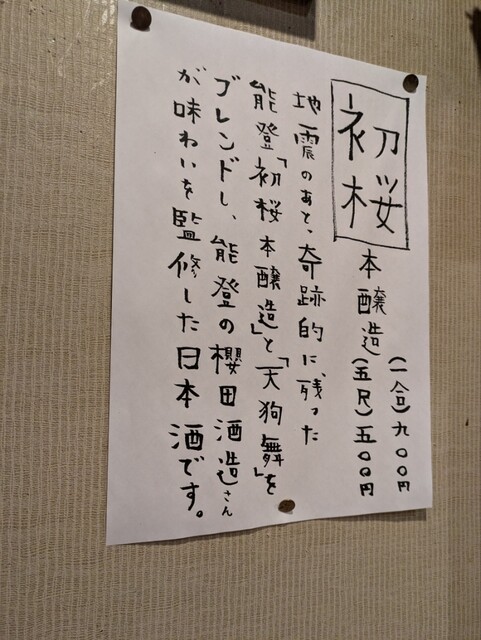 初桜
本醸造
(一合)九〇〇円
(五尺)五〇〇円
地震のあと、奇跡的に、残った
能登「初桜 本醸造」と「天狗舞」を
ブレンドし、能登の櫻田酒造さん
が味わいを監修した日本酒です。